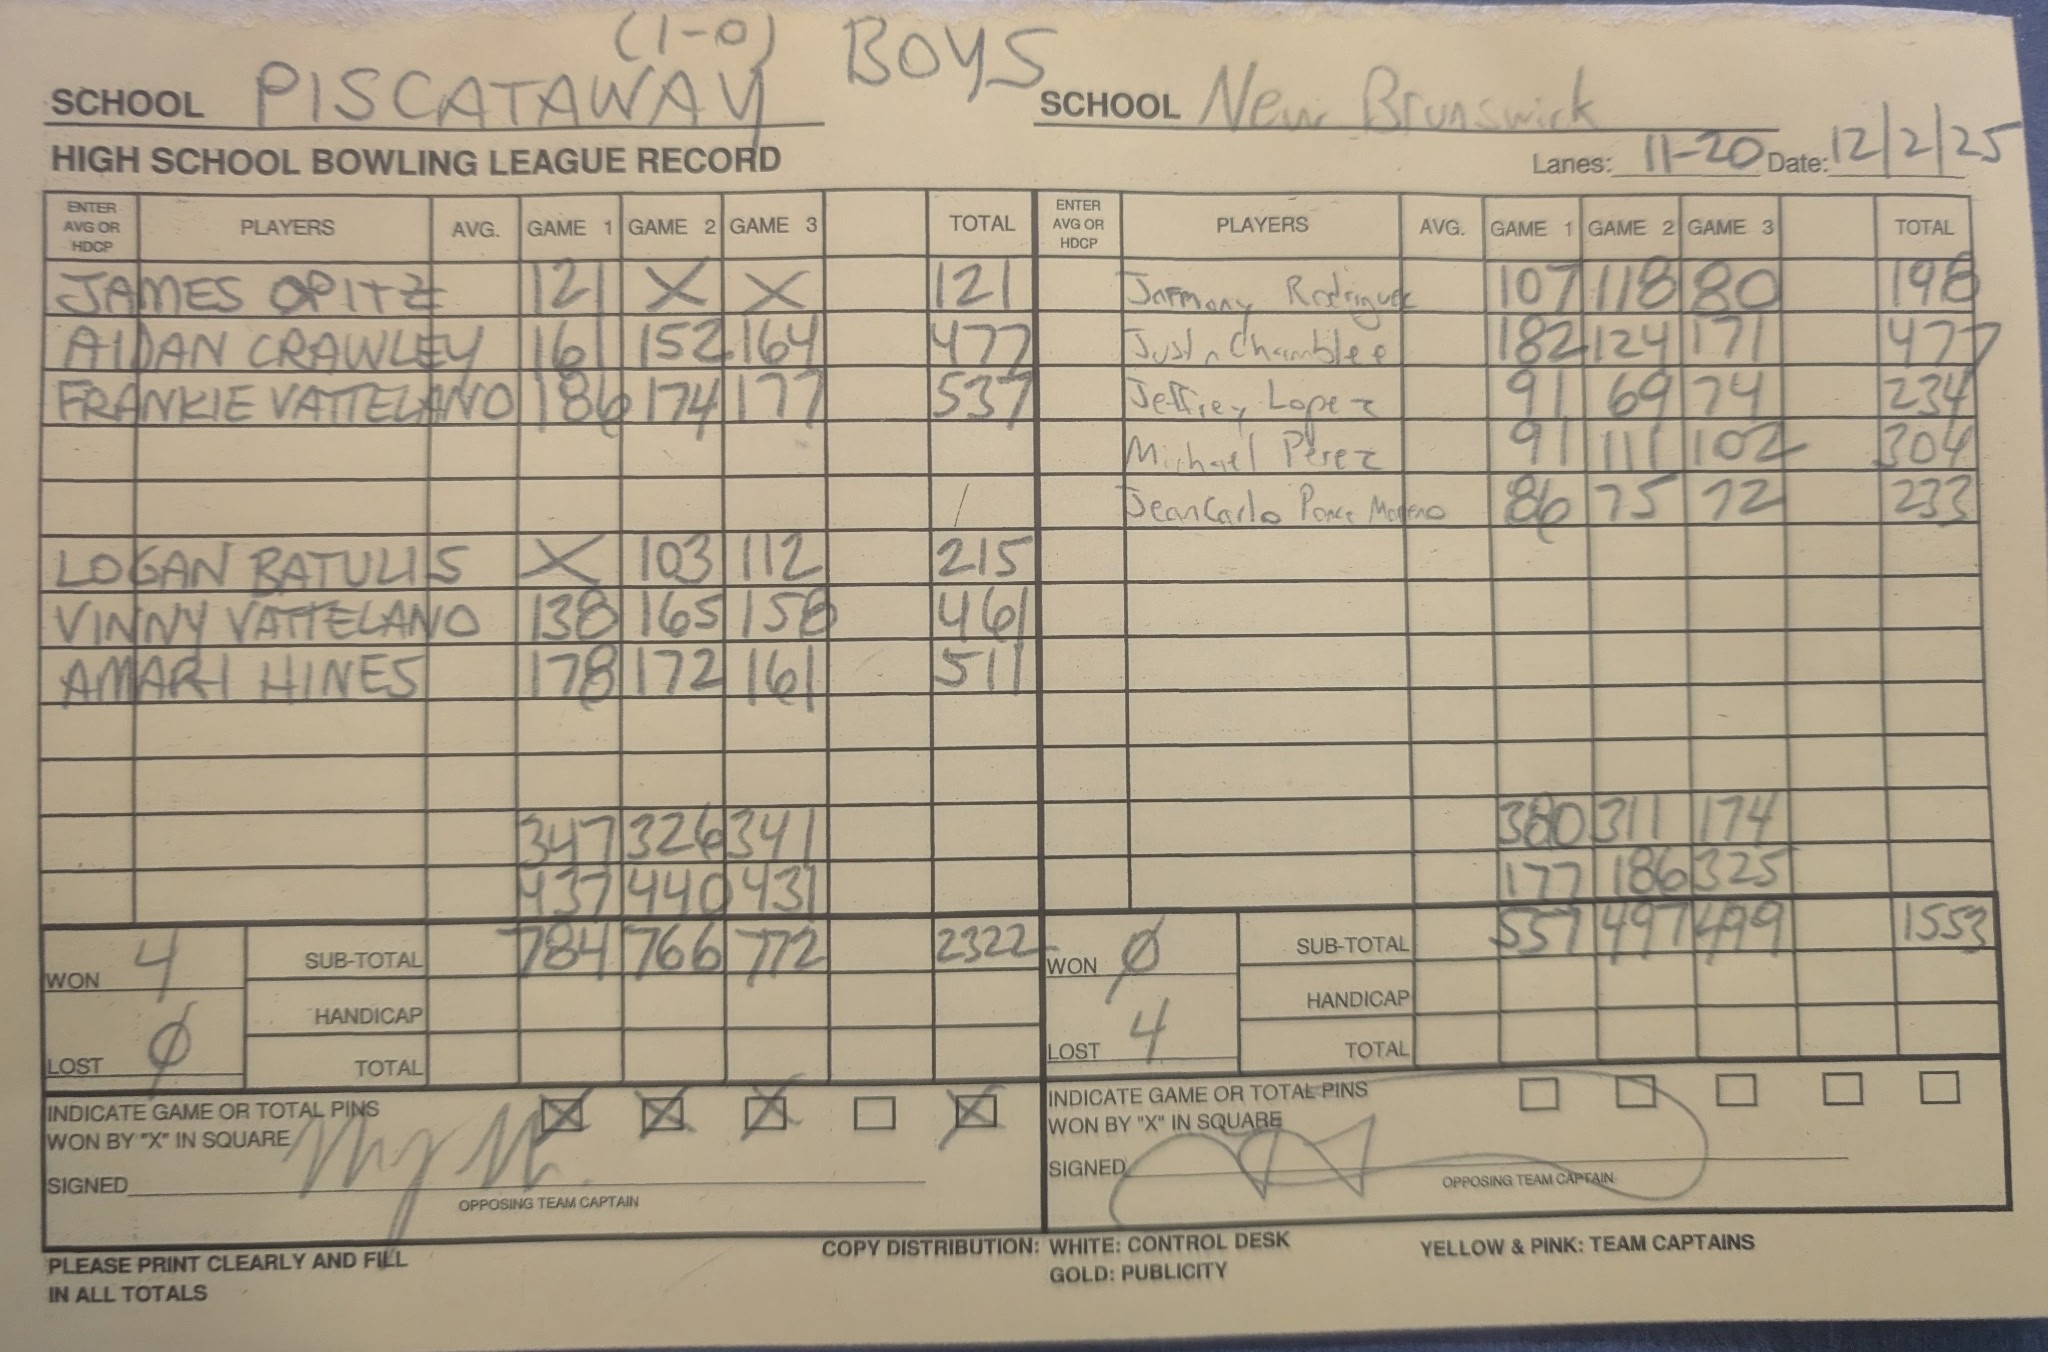 (1-0) BOYS
SCHOOL PISCATAWAY SCHOOL New Brunswick
HIGH SCHOOL BOWLING LEAGUE RECORD Lanes: 11-20 Date: 12/2/25
ENTER AVG OR HDCP PLAYERS AVG. GAME 1 GAME 2 GAME 3 TOTAL ENTER AVG OR HDCP PLAYERS AVG. GAME 1 GAME 2 GAME 3 TOTAL
JAMES OPITZ 121 X X 121 Jarmony Rodriguez 107 118 80 198
AIDAN CRAWLEY 161 152 164 477 Justin Chamblee 182 124 171 477
FRANKIE VATTELANO 186 174 177 537 Jeffrey Lopez 91 69 74 234
Michael Perez 91 111 102 304
/ JeanCarlo Ponce Moreno 86 75 72 233
LOGAN BATULIS X 103 112 215
VINNY VATTELANO 138 165 158 461
AMARI HINES 178 172 161 511
347 326 341 380 311 174
437 440 431 177 186 325
WON 4 SUB-TOTAL 784 766 772 2322 WON Ø SUB-TOTAL 557 497 499 1553
HANDICAP HANDICAP
LOST Ø TOTAL LOST 4 TOTAL
INDICATE GAME OR TOTAL PINS X X X X INDICATE GAME OR TOTAL PINS
WON BY "X" IN SQUARE WON BY "X" IN SQUARE
SIGNED SIGNED
OPPOSING TEAM CAPTAIN OPPOSING TEAM CAPTAIN
PLEASE PRINT CLEARLY AND FILL COPY DISTRIBUTION: WHITE: CONTROL DESK YELLOW & PINK: TEAM CAPTAINS
IN ALL TOTALS GOLD: PUBLICITY